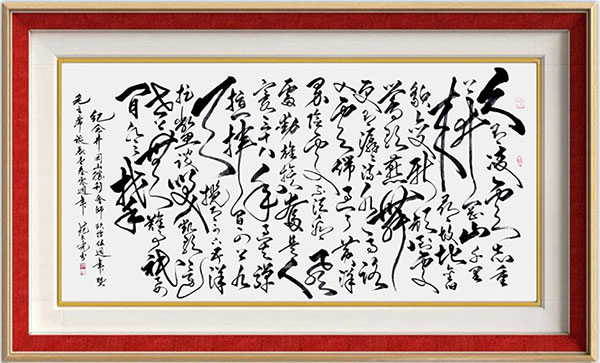 久有凌云志重
上井冈山千里
来寻故地旧
貌变新颜到处
莺歌燕舞
更有潺潺流水高路
入云端过了黄洋
界险处不须看风
雷动旌旗奋是人
寰三十八年过去弹
指一挥间可上九
天揽月可下五洋
捉鳖谈笑凯歌还
世上无难事只要
肯登攀
纪念井冈山胜利会师 周年暨
毛主席诞辰 周年